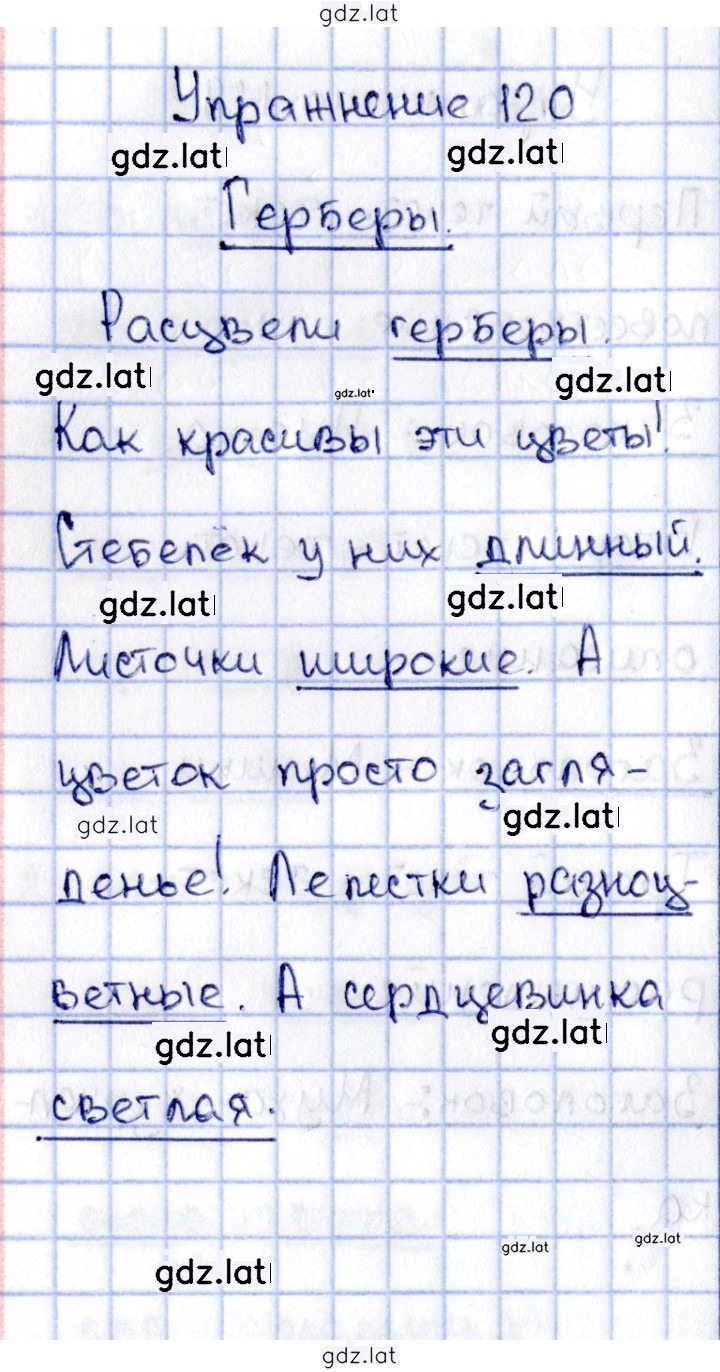 gdz.lat
Упражнение 120
gdz.lat gdz.lat
Герберы.
Расцвели герберы.
gdz.lat gdz.lat gdz.lat
Как красивы эти цветы!
Стебелёк у них длинный.
gdz.lat gdz.lat
Листочки широкие. А
цветок просто загля-
gdz.lat gdz.lat
денье! Лепестки разноц-
ветные. А сердцевинка
gdz.lat gdz.lat
светлая.
gdz.lat gdz.lat
gdz.lat
gdz.lat